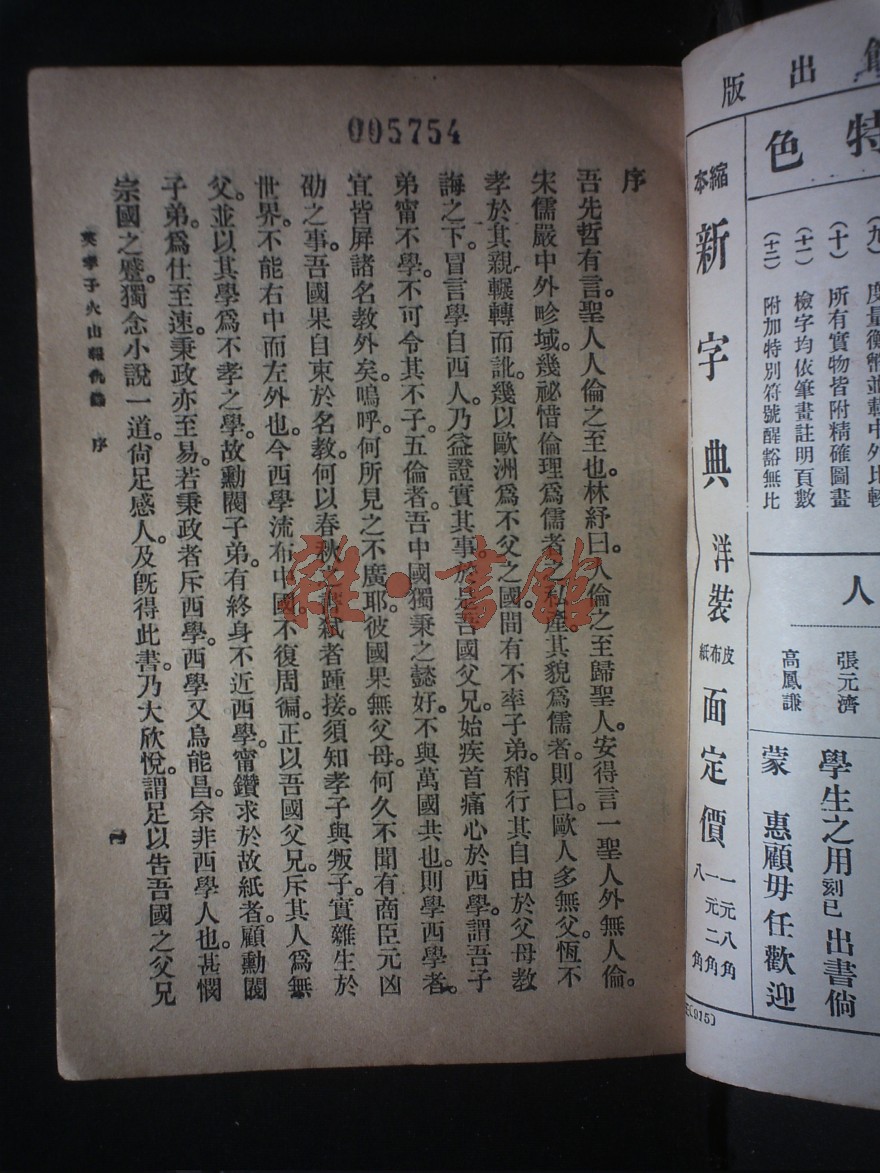 005754
序
吾先哲有言。聖人人倫之至也。林紓曰。人倫之至歸聖人。安得言一聖人外無人倫。
宋儒嚴中外畛域。幾祕惜倫理爲儒者之私產。其貌爲儒者。則曰。歐人多無父。恆不
孝於其親。輾轉而訛。幾以歐洲爲不父之國。間有不率子弟。稍行其自由於父母教
誨之下。冒言學自西人。乃益證實其事。於是吾國父兄。始疾首痛心於西學。謂吾子
弟甯不學。不可令其不子。五倫者。吾中國獨秉之懿好。不與萬國共也。則學西學者。
宜皆屏諸名教外矣。嗚呼。何所見之不廣耶。彼國果無父母。何久不聞有商臣元凶
劭之事。吾國果自束於名教。何以春秋之書弒者踵接。須知孝子與叛子。實雜生於
世界。不能右中而左外也。今西學流布中國。不復周徧。正以吾國父兄。斥其人爲無
父。並以其學爲不孝之學。故勳閥子弟。有終身不近西學。甯鑽求於故紙者。顧勳閥
子弟。爲仕至速。秉政亦至易。若秉政者斥西學。西學又烏能昌。余非西學人也。甚憫
宗國之蹙。獨念小說一道。尙足感人。及旣得此書。乃大欣悅。謂足以告吾國之父兄
英孝子火山報仇錄 序
雜·書館
出版
特色
(九) 度量衡幣並載中外比較
(十) 所有實物皆附精確圖畫
(十一) 檢字均依筆畫註明頁數
(十二) 附加特別符號醒豁無比
縮本 新字典 洋裝 皮布紙 面定價 一元八角 一元二角 八角
人
張元濟
高鳳謙
學生之用刻已出書倘
蒙 惠顧毋任歡迎
(915)